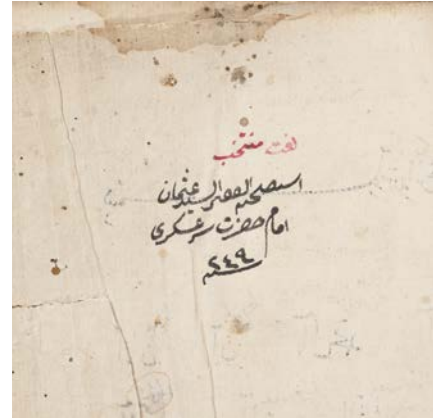 لغت منتخب
استصحبه الفقير السيد عثمان
امام حضرت سر عسكري
سنه ٢٤٩